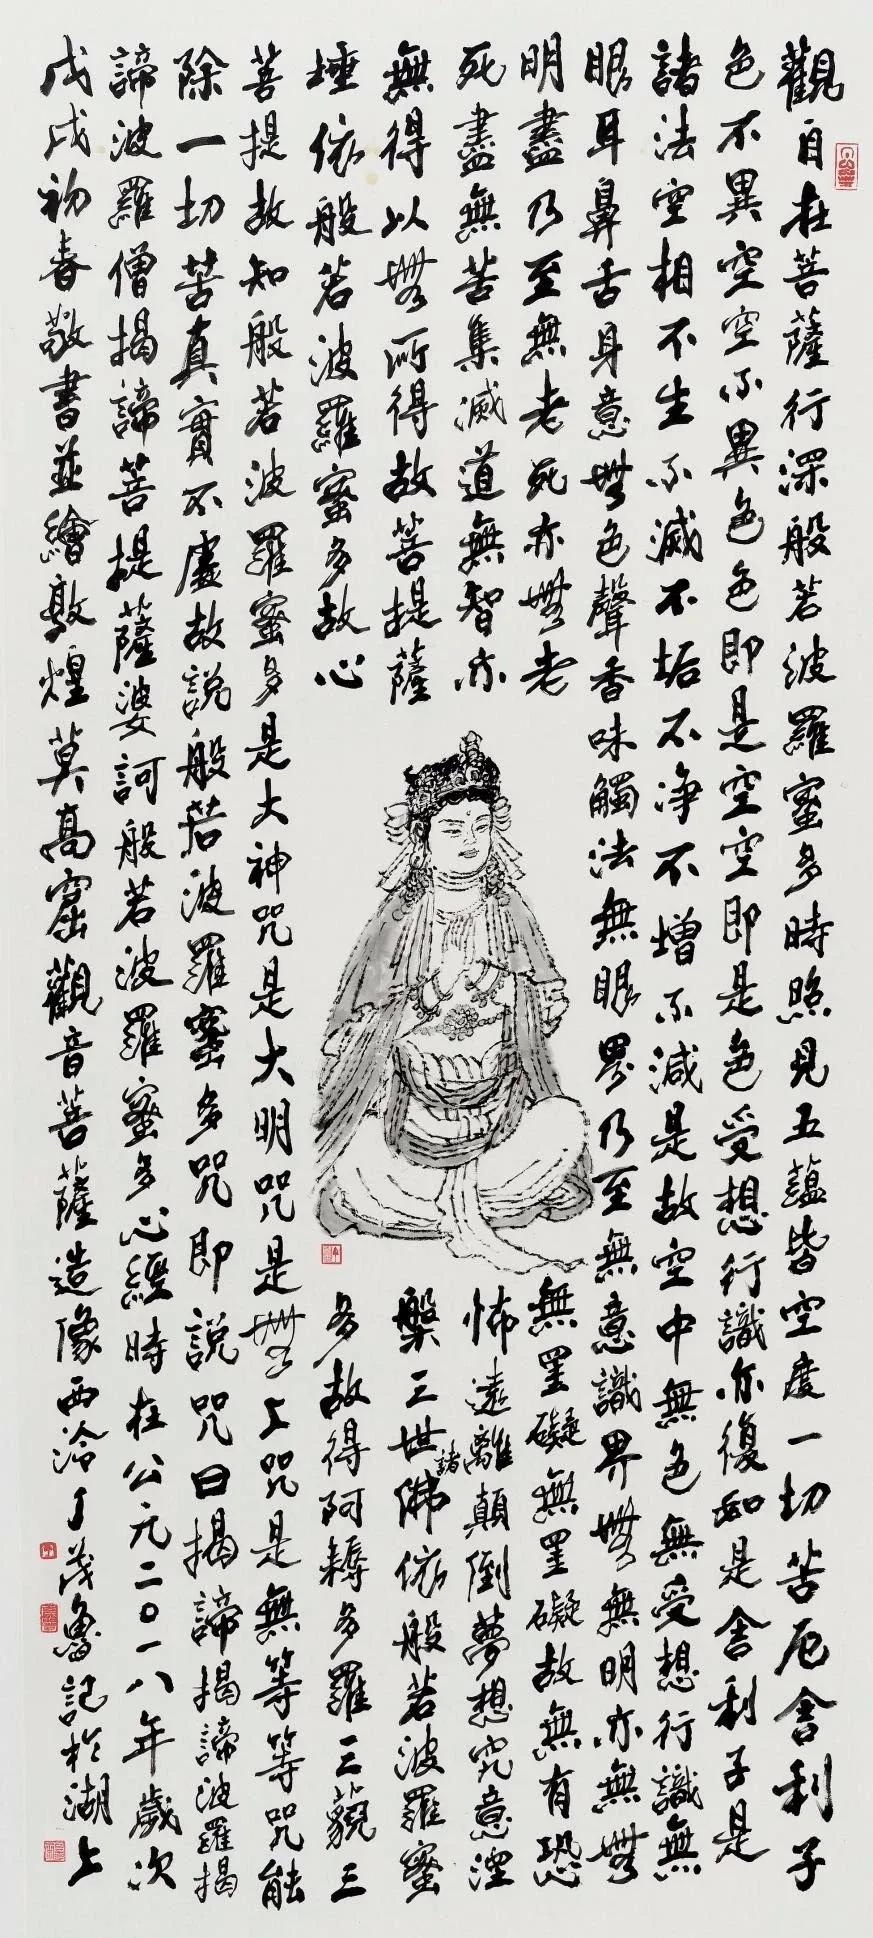 觀自在菩薩行深般若波羅蜜多時照見五蘊皆空度一切苦厄舍利子
色不異空空不異色色即是空空即是色受想行識亦復如是舍利子是
諸法空相不生不滅不垢不净不增不減是故空中無色無受想行識無
眼耳鼻舌身意無色聲香味觸法無眼界乃至無意識界無無明亦無無
明盡乃至無老死亦無老
死盡無苦集滅道無智亦
無得以無所得故菩提薩
埵依般若波羅蜜多故心
無罣礙無罣礙故無有恐
怖遠離顛倒夢想究竟涅
槃三世諸佛依般若波羅蜜
多故得阿耨多羅三藐三
菩提故知般若波羅蜜多是大神咒是大明咒是無上咒是無等等咒能
除一切苦真實不虛故說般若波羅蜜多咒即說咒曰揭諦揭諦波羅揭
諦波羅僧揭諦菩提薩婆訶般若波羅蜜多心經時在公元二〇一八年歲次
戊戌初春敬書並繪敦煌莫高窟觀音菩薩造像西泠丁茂魯記於湖上